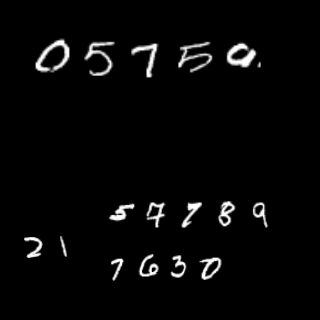 05750
57789
21
7630